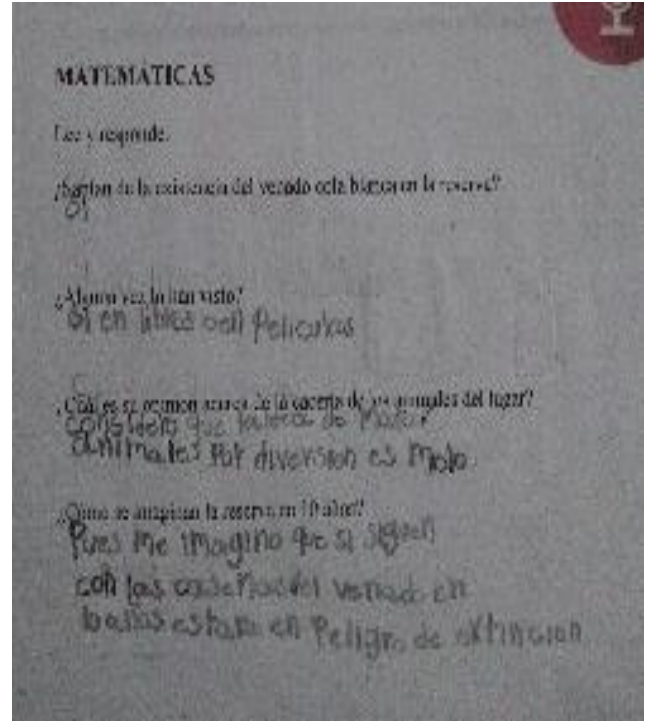 MATEMÁTICAS
Lee y responde.
¿Sabían de la existencia del venado cola blanca en la reserva?
Si
¿Alguna vez lo han visto?
Si en libros o en Peliculas
¿Cuál es su opinión acerca de la cacería de los animales del lugar?
considero que de matar
animales Por diversion es malo
¿Cómo se imaginan la reserva en 10 años?
Pues me imagino que si siguen
con las del venado en
estara en Peligro de extincion